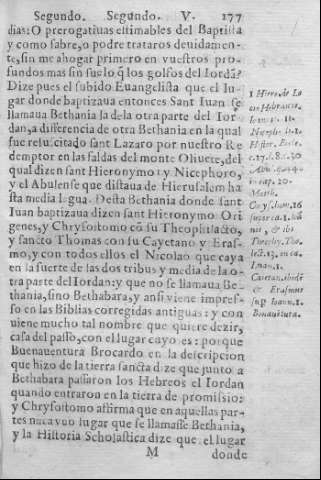 Segundo. Segundo. V. 177
dias: O prerogatiuas estimables del Baptista
y como sabre, o podre trataros deuidamen-
te, sin me ahogar primero en vuestros pro-
fundos mas sin suelo q̃ los golfos del Iordã?
Dize pues el subido Euangelista que el lu-
gar donde baptizaua entonces Sant Iuan se
llamaua Bethania la de la otra parte del Ior-
dan, a differencia de otra Bethania en la qual
fue resuscitado sant Lazaro por nuestro Re
demptor en las faldas del monte Oliuete, del
qual dizen sant Hieronymo, y Nicephoro,
y el Abulense que distaua de Hierusalem ha
sta media legua. Desta Bethania donde sant
Iuan baptizaua dizen sant Hieronymo Ori
genes, y Chrysostomo cõ su Theophilacto,
y sancto Thomas con su Cayetano y Eras-
mo, y con todos ellos el Nicolao que caya
en la suerte de las dos tribus y media de la o-
tra parte del Iordan: y que no se llamaua Be-
thania, sino Bethabara, y ansi viene impres-
so en las Biblias corregidas antiguas: y con
uiene mucho tal nombre que quiere dezir,
casa del passo, con el lugar cuyo es: porque
Buenauentura Brocardo en la descripcion
que hizo de la tierra sancta dize que junto a
Bethabara passaron los Hebreos el Iordan
quando entraron en la tierra de promissiō:
y Chrysostomo affirma que en aquellas par-
tes nūca vuo lugar que se llamasse Bethania,
y la Historia Scholastica dize que el lugar
M donde
1 Hiero. de Lo
cis Hebraicis.
Ioan. 11.
Niceph. li. 1.
Histor. Eccle.
in cap. 20.
Matth.
Chrysosom. 16
Theoph. Tho.
Ioan. 1.
Caietan. ibidē
& Erasmus
sup Ioann. 1.
Bonauētura.